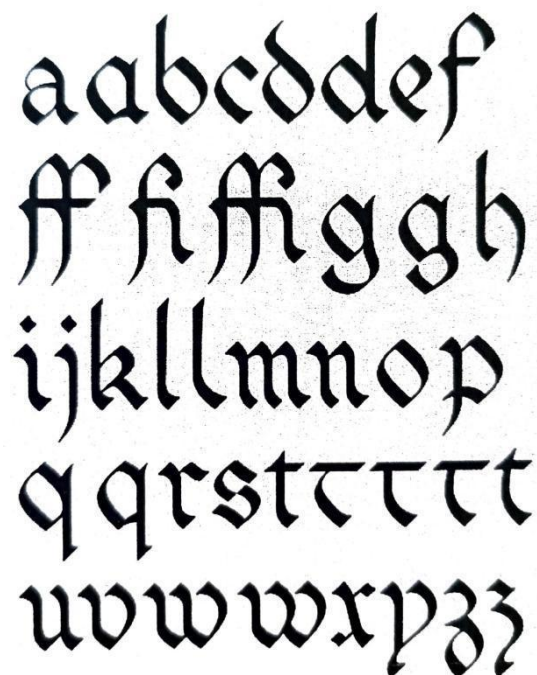 aabcddef
ff fi ffi ggh
ijkllmnop
qqrstttttt
uvwwxyzz